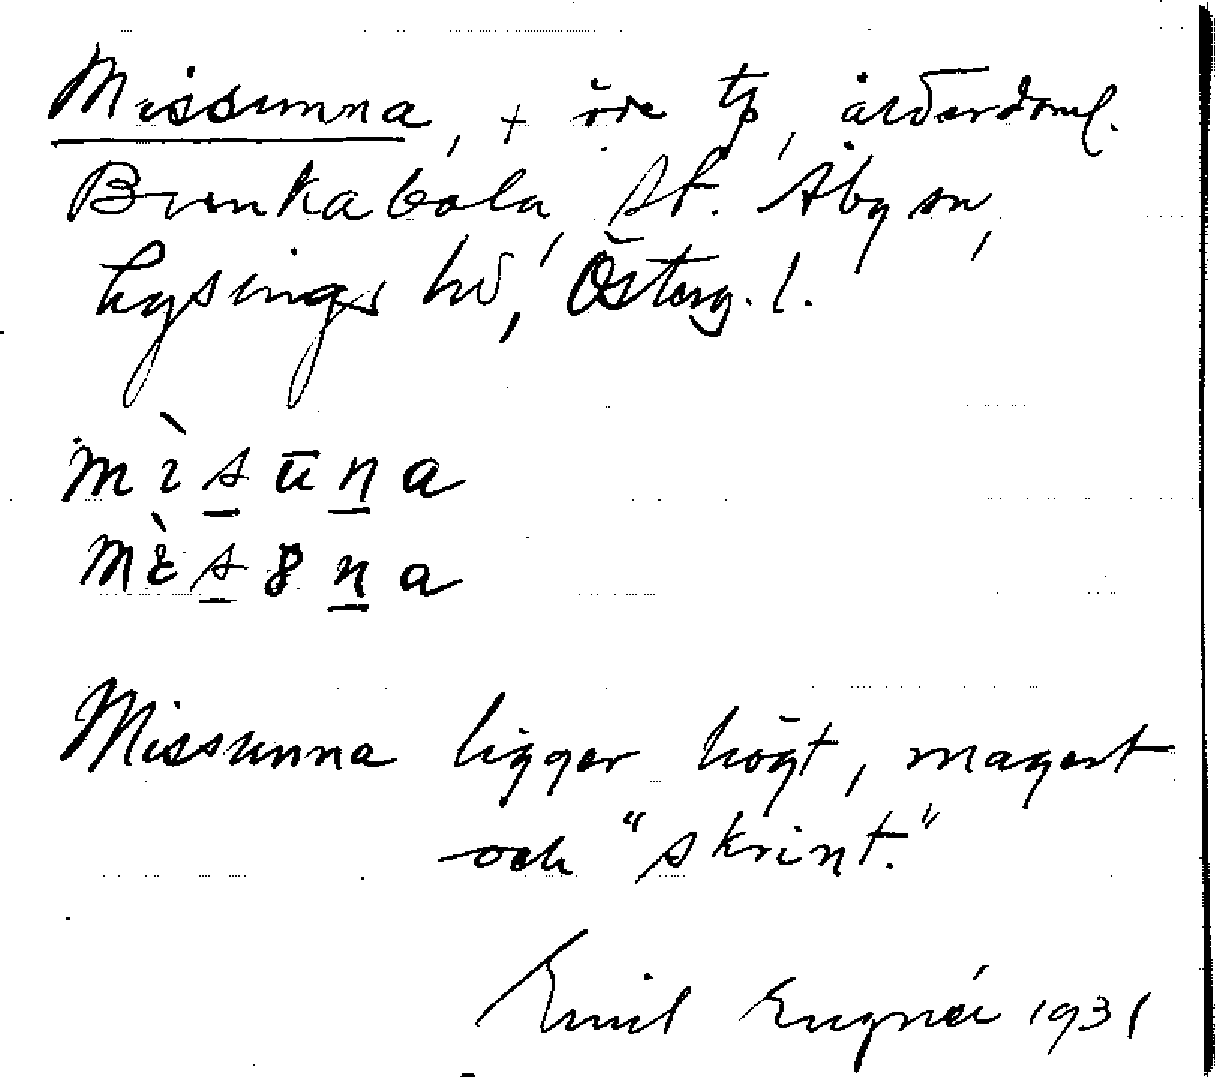 Missunna, + öde tp, ålderdoml.
Brunkabola, St. Åby sn,
Lysings hd, Österg. l.
mìsuna
mèsna
Missunna ligger högt, magert
och "skrint."
Emil 1931